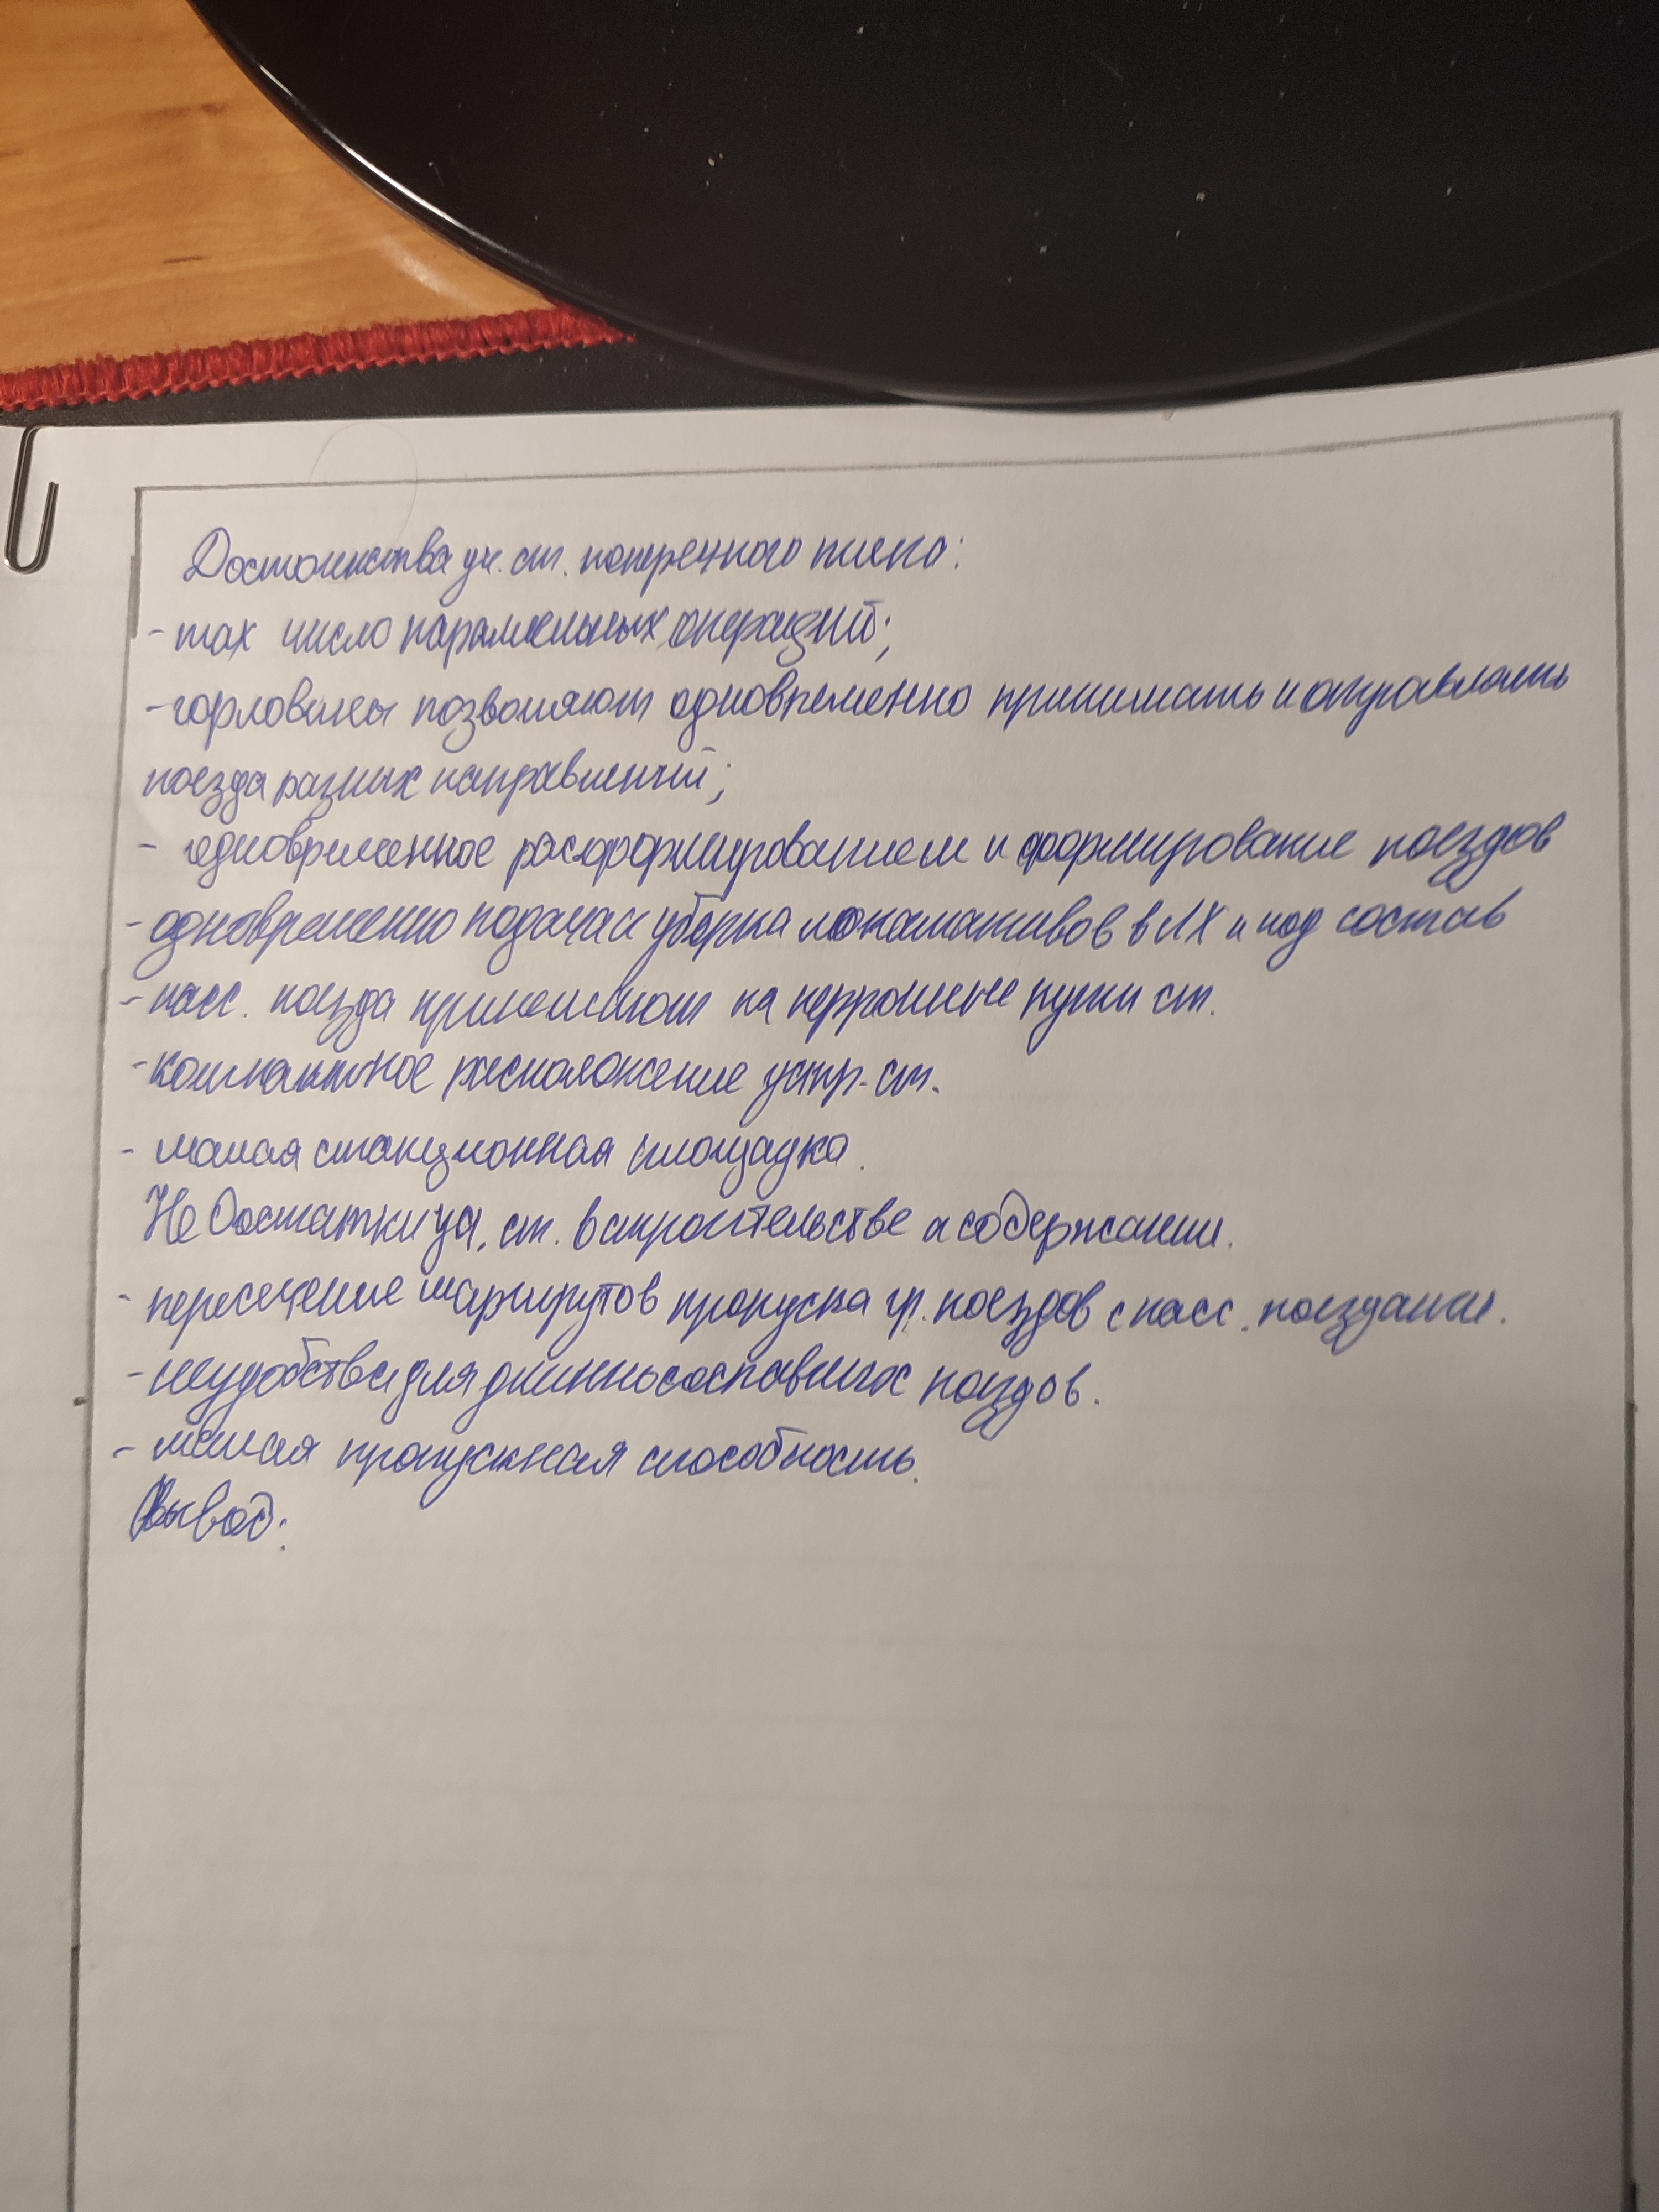 Достоинства уч. ст. поперечного типа:
- max число параллельных операций;
- горловины позволяют одновременно принимать и отправлять
поезда разных направлений;
- одновременное расформированием и формирование поездов
- одновременно подача и уборка локомативов в ЛХ и под состав
- пасс. поезда принимают на перронные пути ст.
- компактное расположение устр. ст.
- малая станционная площадка.
Недостатки уч. ст. в строительстве и содержании.
- пересечение маршрутов пропуска гр. поездов с пасс. поездами.
- неудобства для длинносоставных поездов.
- малая пропускная способность.
Вывод: